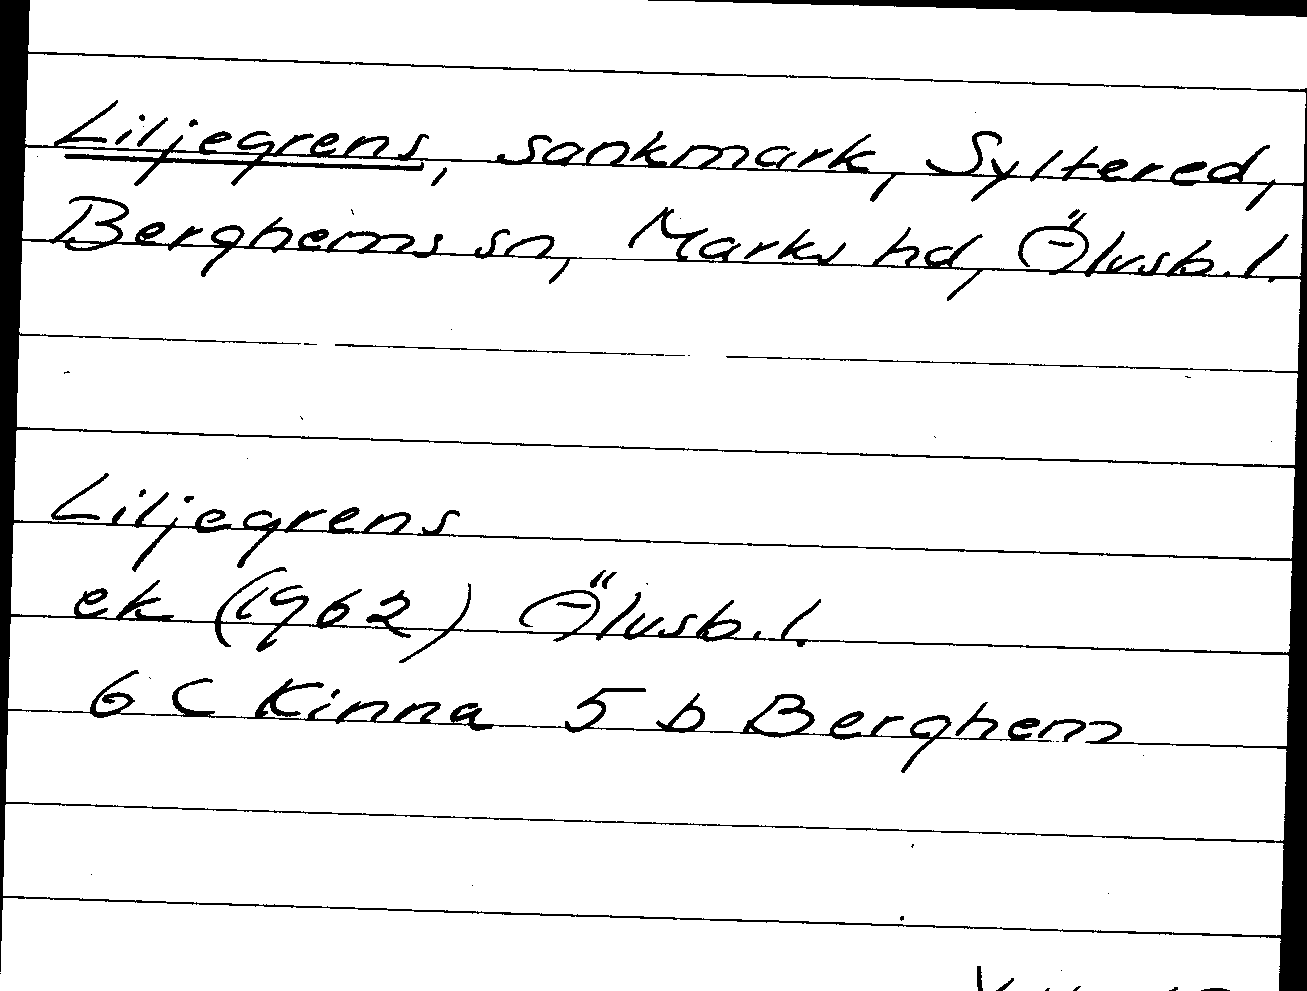 Liljegrens, sankmark, Syltered,
Berghems sn, Marks hd, Älvsb. l.
Liljegrens
ek (1962) Älvsb. l.
6 C Kinna 5 b Berghem